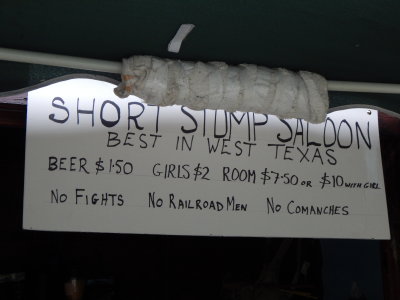 SHORT STUMP SALOON
BEST IN WEST TEXAS
BEER $1.50 GIRLS $2 ROOM $7.50 OR $10 WITH GIRL
NO FIGHTS NO RAILROAD MEN NO COMANCHES